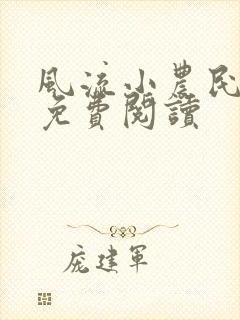 風流小農民
免費閱讀
庞建軍